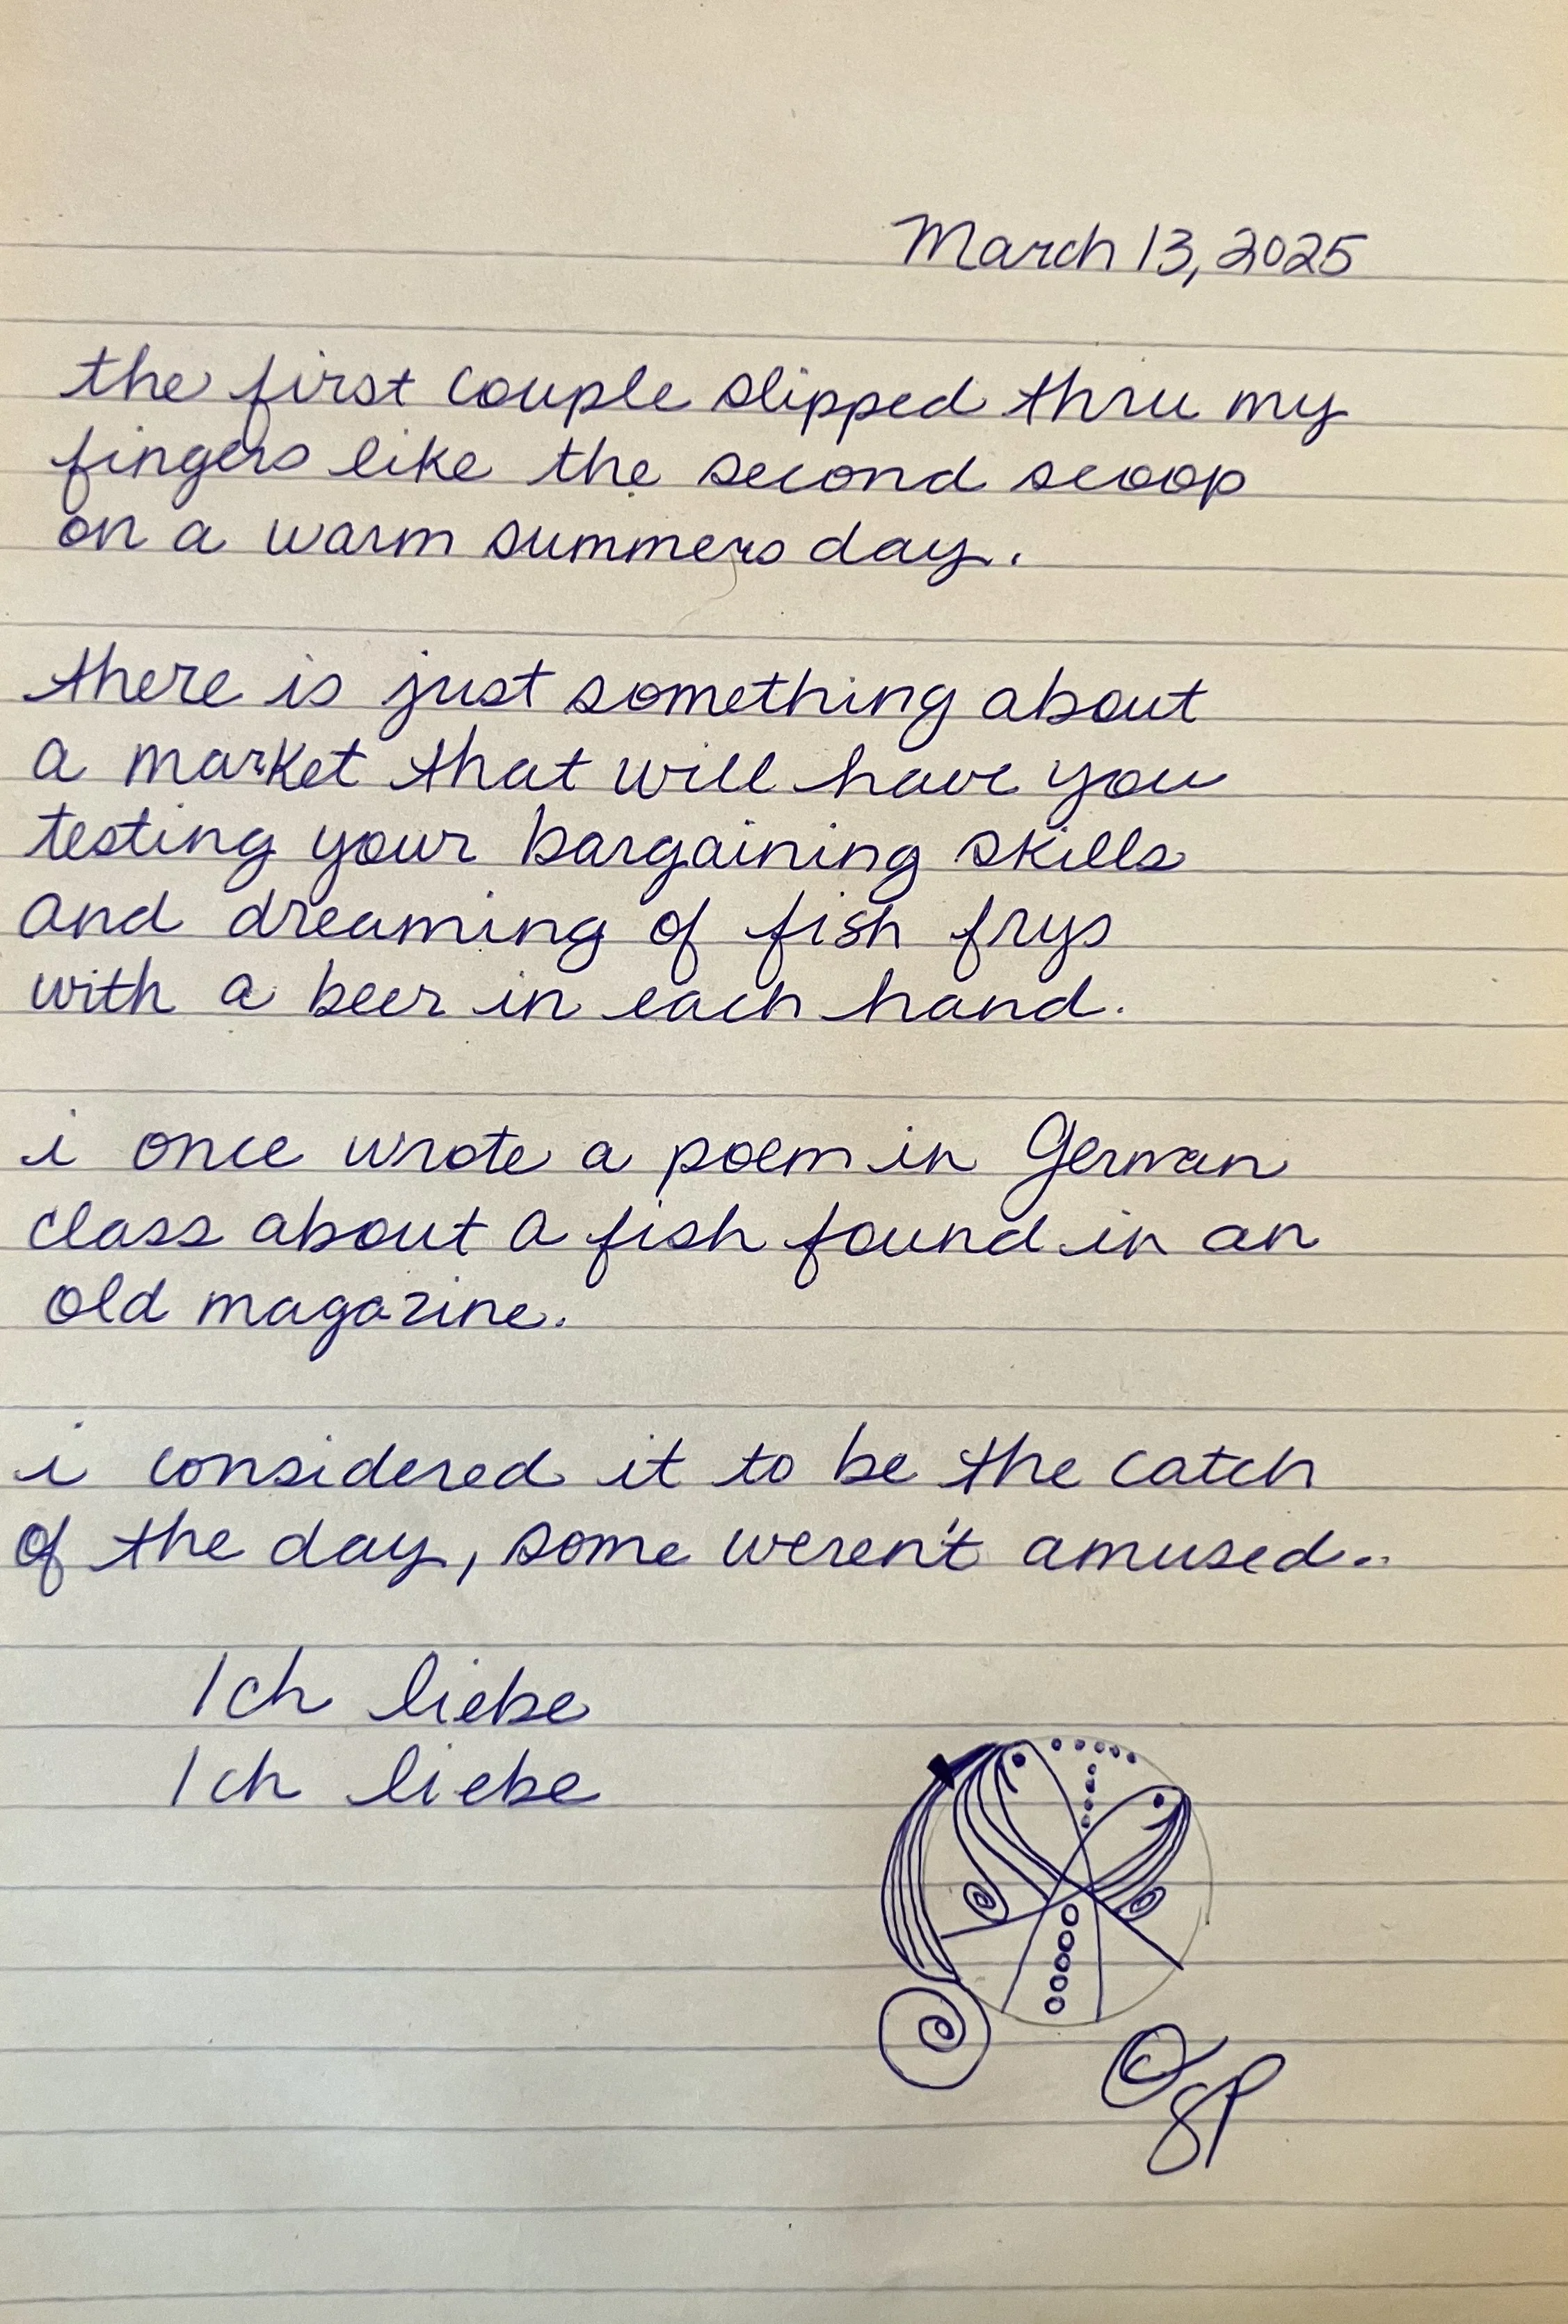 March 13, 2025
the first couple slipped thru my
fingers like the second scoop
on a warm summers day.
there is just something about
a market that will have you
testing your bargaining skills
and dreaming of fish frys
with a beer in each hand.
i once wrote a poem in German
class about a fish found in an
old magazine.
i considered it to be the catch
of the day, some weren't amused..
Ich liebe
Ich liebe
©SP